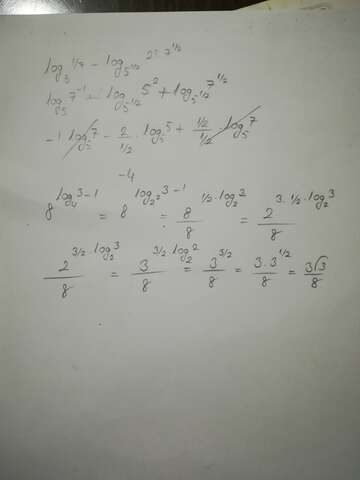 log₅ 1/7 − log_{5^{1/2}} 25·7^{1/2}
log₅ 7⁻¹ + log_{5^{1/2}} 5² + log_{5^{1/2}} 7^{1/2}
−1 log₅ 7 − 2/(1/2) · log₅ 5 + (1/2)/(1/2) · log₅ 7
−4
8^{log₄ 3−1} = 8^{log_{2²} 3−1} = 8^{1/2·log₂ 3}/8 = 2^{3·1/2·log₂ 3}/8
2^{3/2·log₂ 3}/8 = 3^{3/2·log₂ 2}/8 = 3^{3/2}/8 = 3·3^{1/2}/8 = 3√3/8